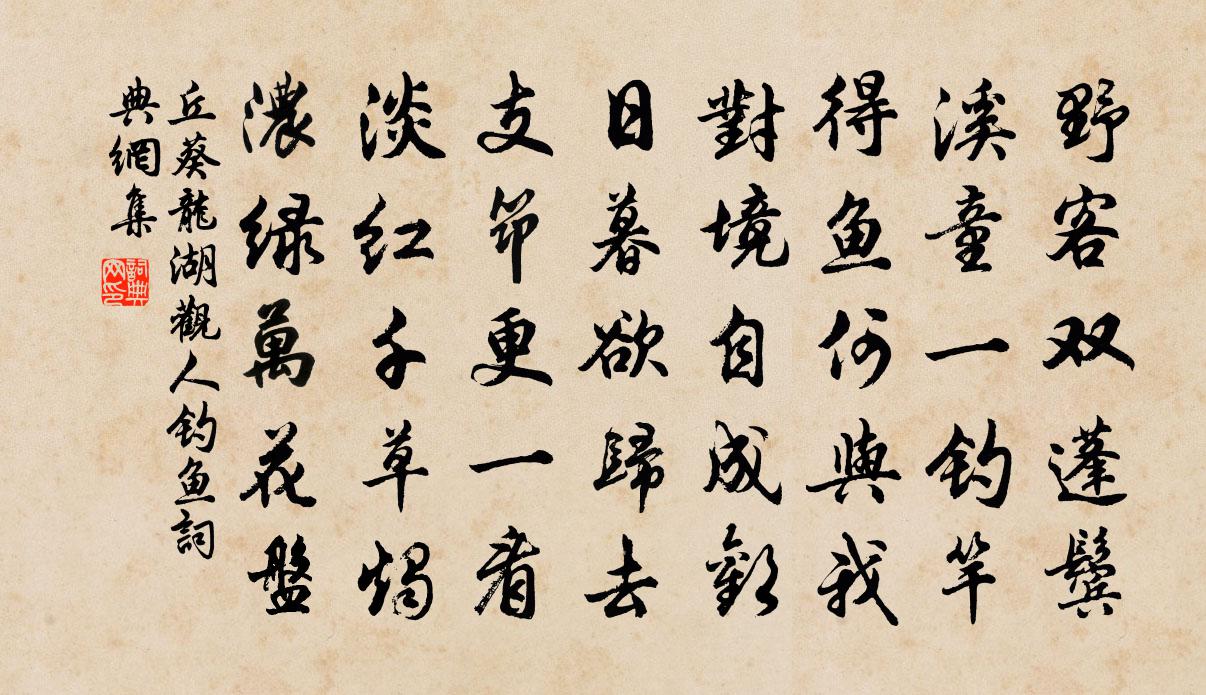 野客双蓬鬢
溪童一钓竿
得鱼何與我
對境自成歡
日暮欲歸去
支筇更一看
淡红千草燭
濃绿萬花盤
丘葵龍湖觀人钓鱼詞
典網集
詞典
网印